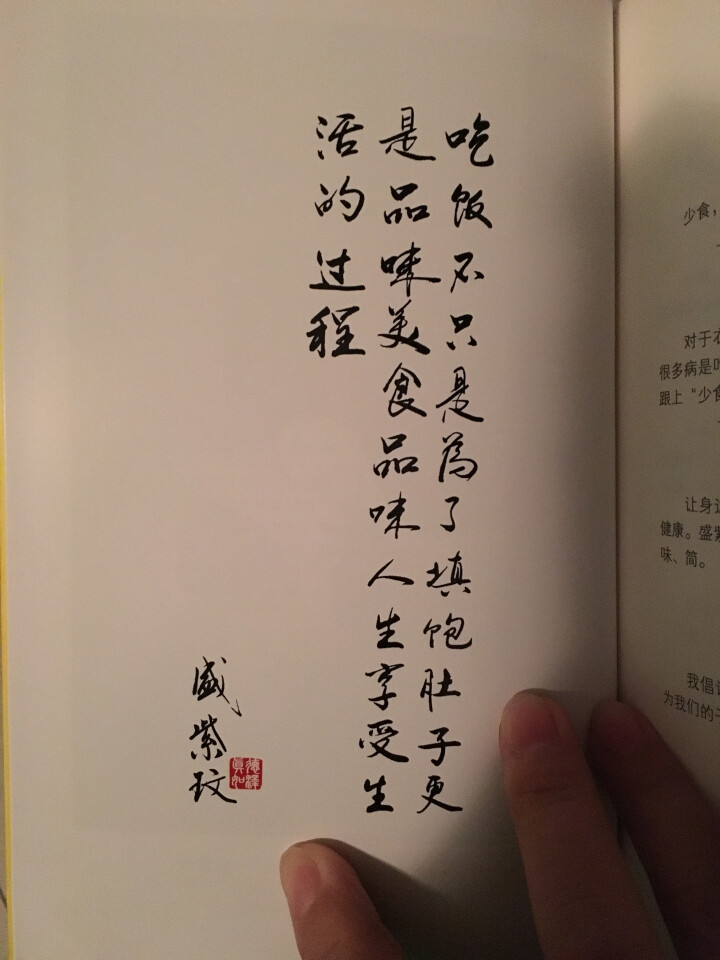 吃饭不只是為了填饱肚子更
是品味美食品味人生享受生
活的过程
盛紫玟
少食，
对于
很多病是
跟上“少食
让身
健康。盛紫
味、简。
我倡
为我们的